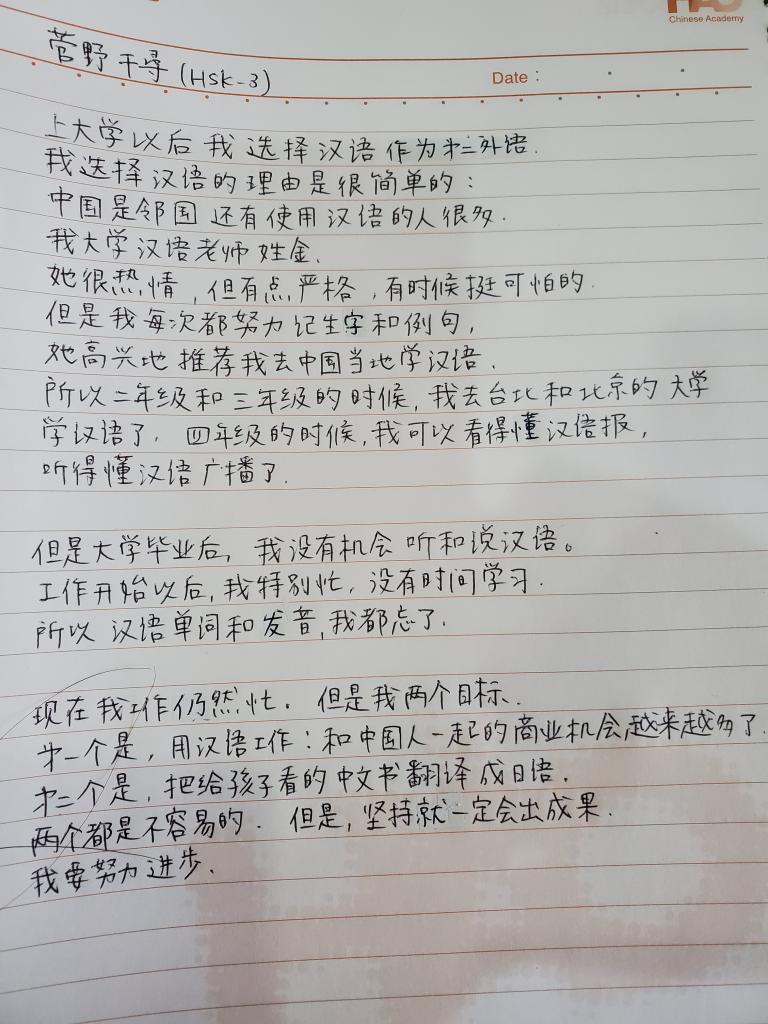 Chinese Academy
菅野千尋 (HSK-3)
Date :
上大学以后我选择汉语作为第二外语.
我选择汉语的理由是很简单的：
中国是邻国 还有使用汉语的人很多.
我大学汉语老师姓金.
她很热情，但有点严格，有时候挺可怕的.
但是我每次都努力记生字和例句，
她高兴地推荐我去中国当地学汉语.
所以二年级和三年级的时候，我去台北和北京的大学
学汉语了. 四年级的时候，我可以看得懂汉语报，
听得懂汉语广播了.
但是大学毕业后，我没有机会听和说汉语。
工作开始以后，我特别忙，没有时间学习.
所以 汉语单词和发音，我都忘了.
现在我工作仍然忙. 但是我两个目标.
第一个是，用汉语工作：和中国人一起的商业机会，越来越多了.
第二个是，把给孩子看的中文书翻译成日语.
两个都是不容易的. 但是，坚持就一定会出成果.
我要努力进步.